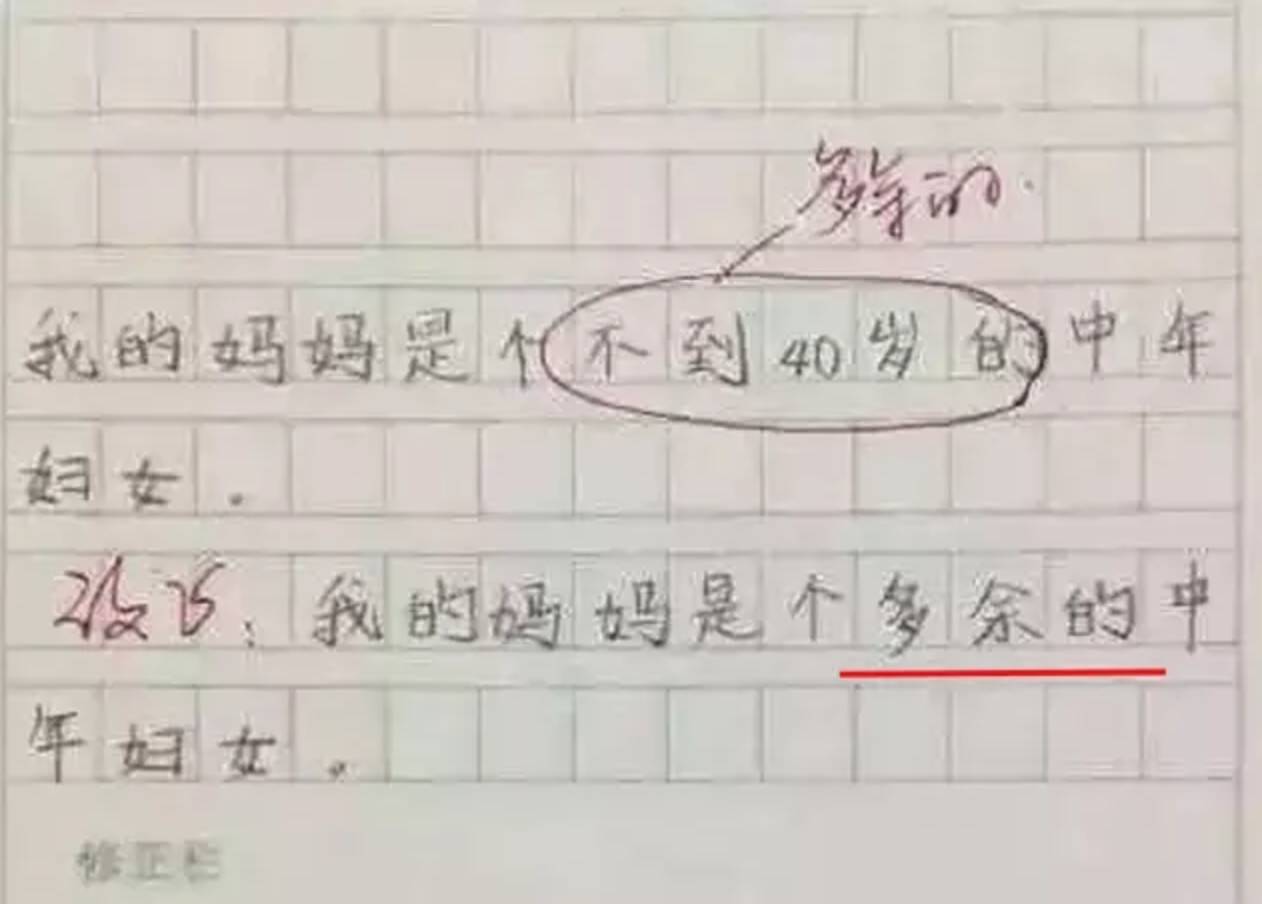 多余的.
我的妈妈是个不到40岁的中年
妇女。
改巧:我的妈妈是个多余的中
年妇女。
修正栏